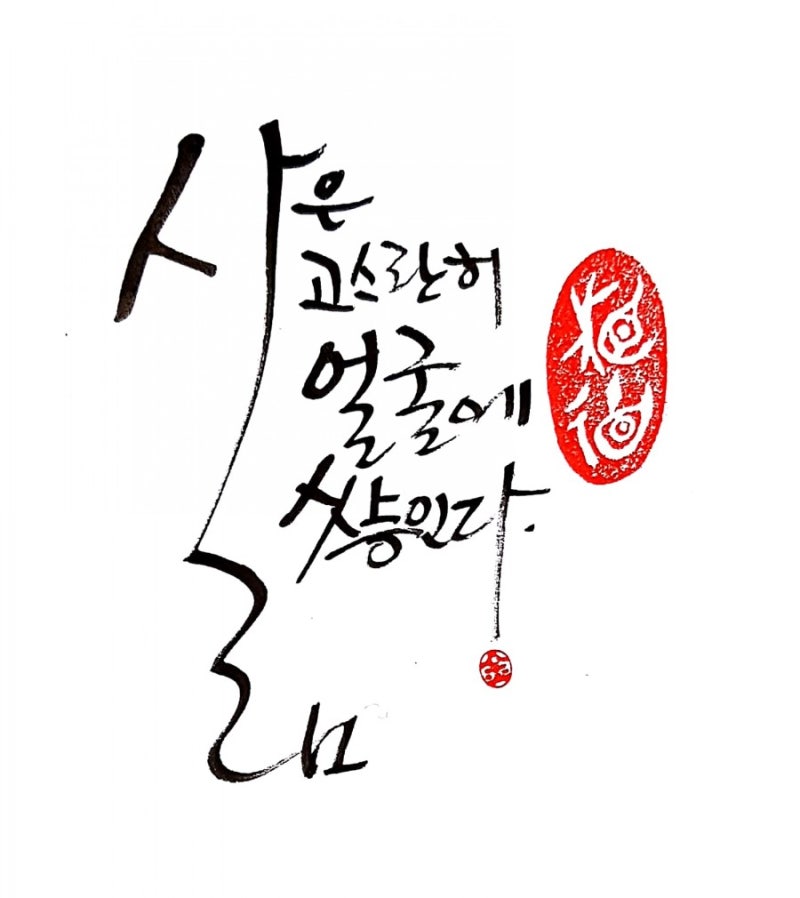 삶은
고스란히
얼굴에
쌓인다.